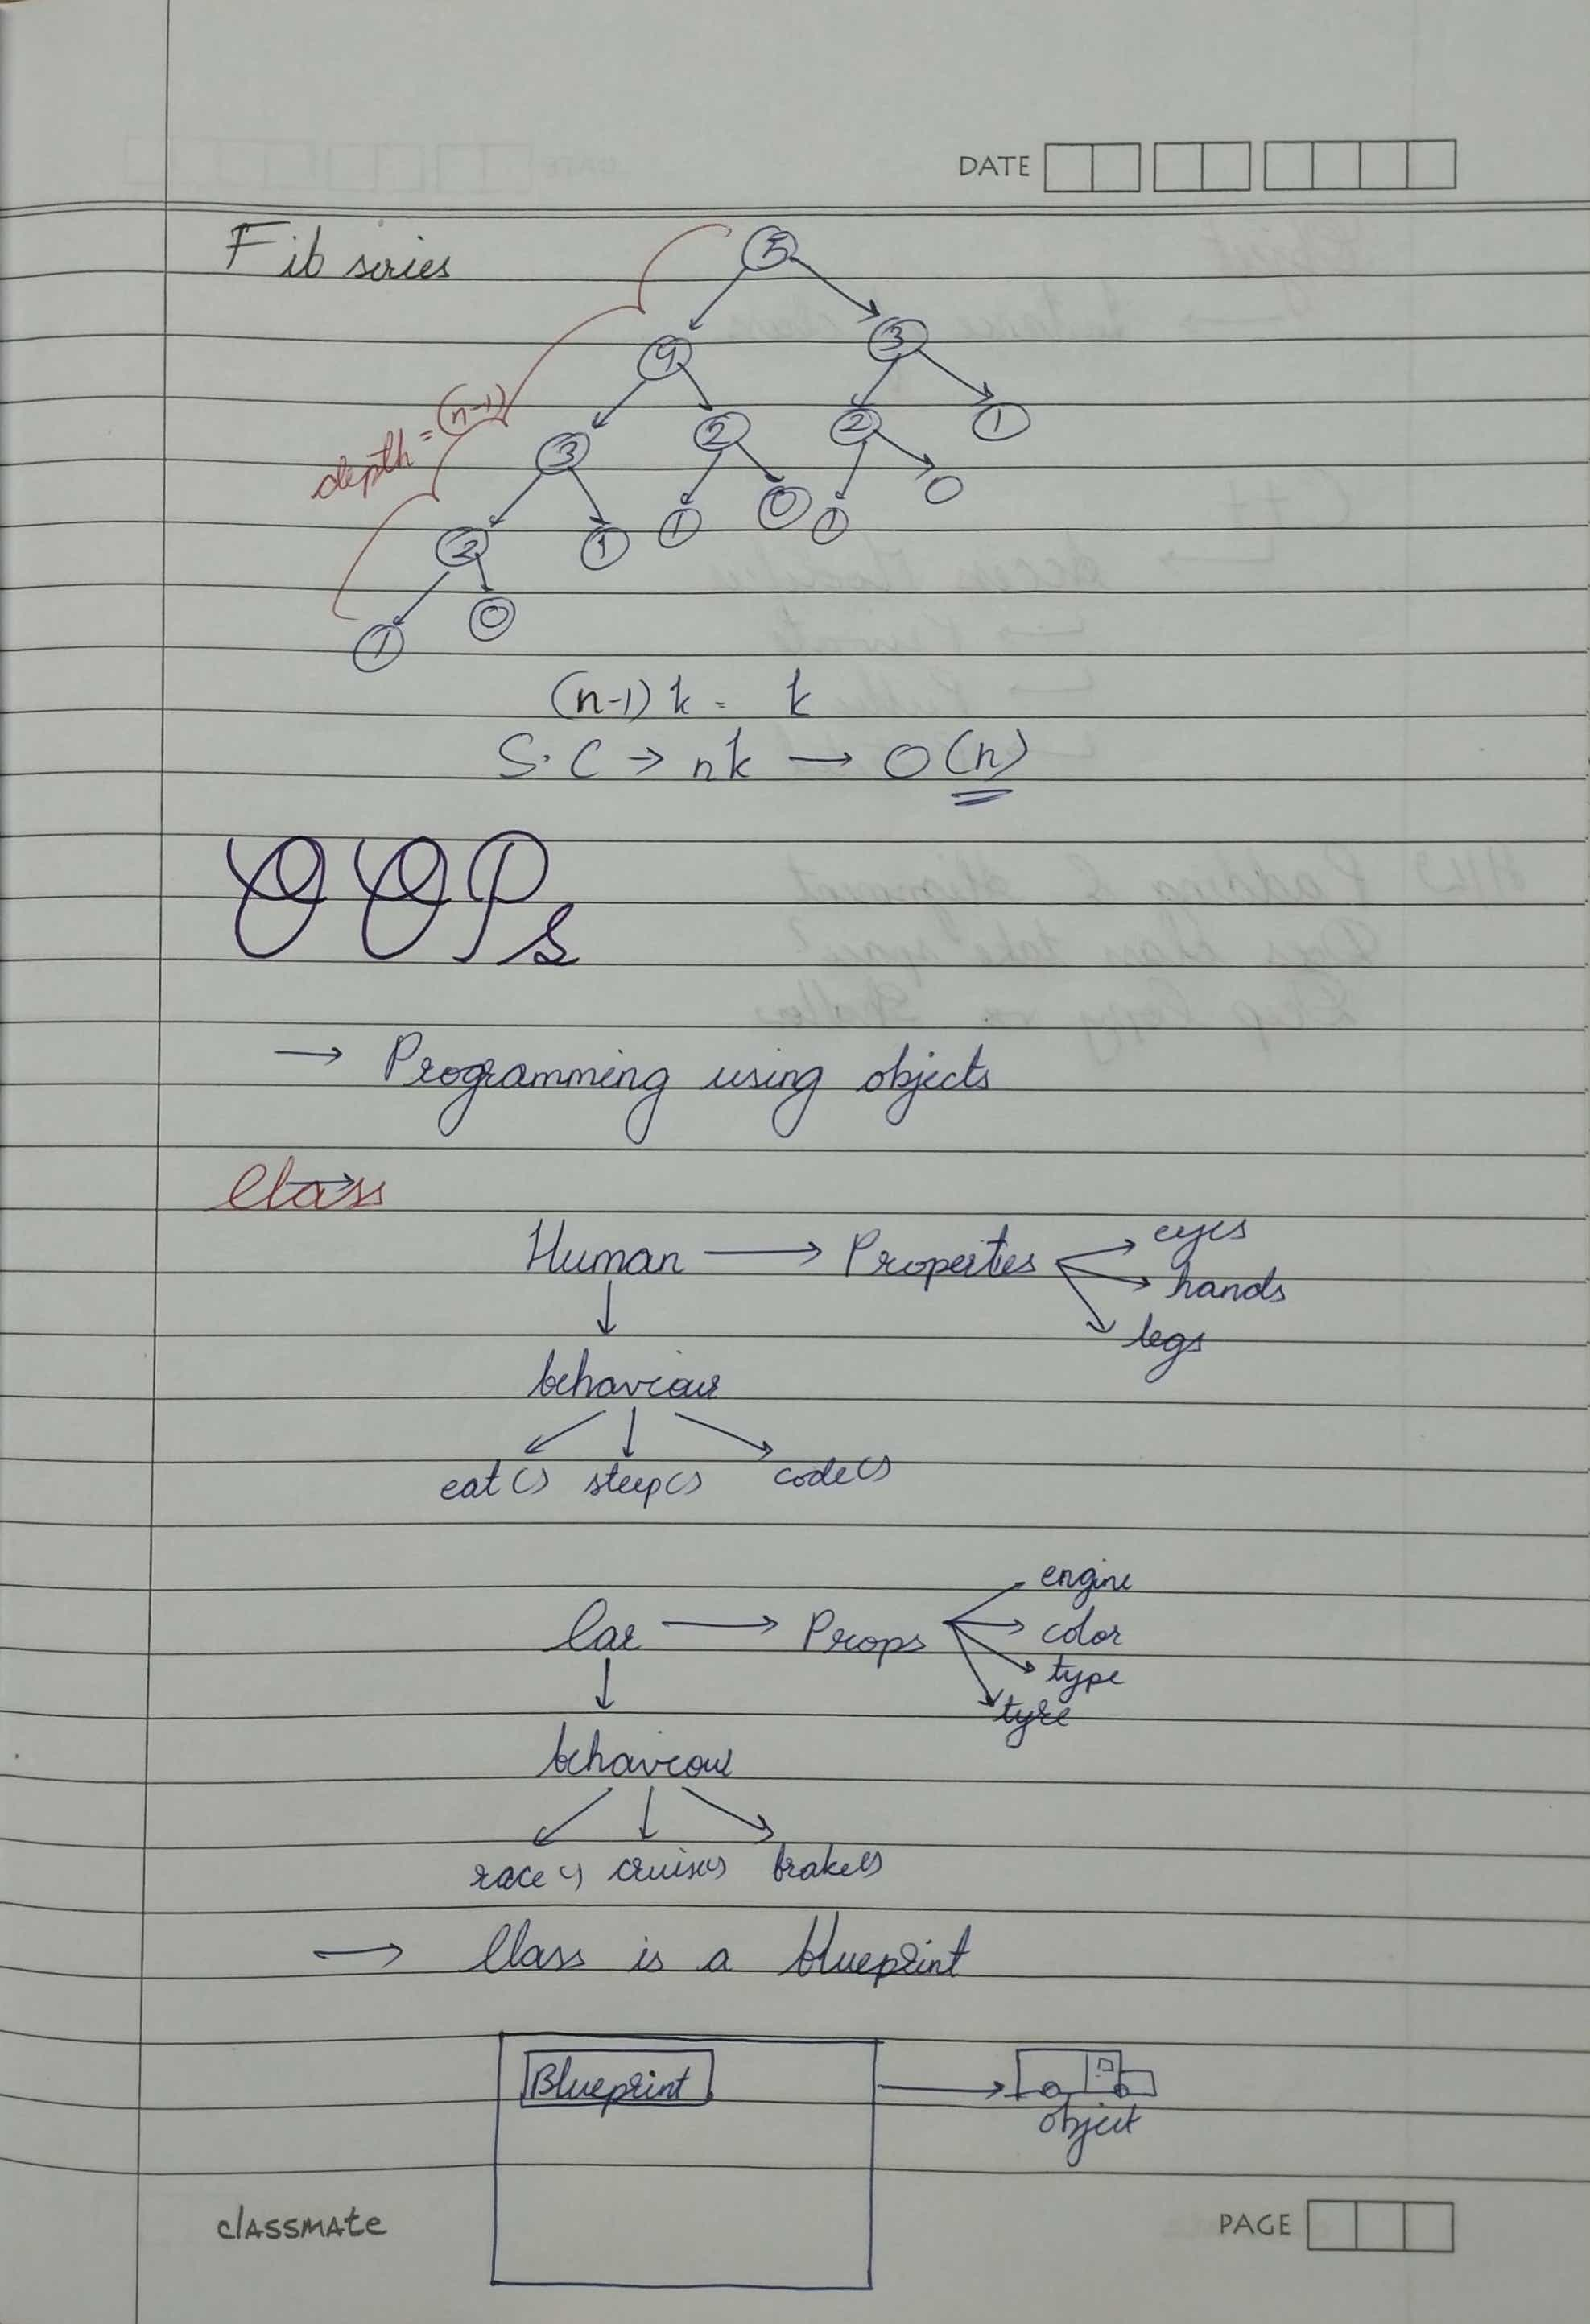 DATE
Fib series
5
4 3
3 2 2 1
depth = (n-1)
2 1 1 0 1 0
1 0
(n-1) k = k
S.C → nk → O(n)
OOPs
→ Programming using objects
Class
Human → Properties → eyes
hands
legs
behaviour
eat() sleep() code()
Car → Props → engine
color
type
tyre
behaviour
race() cruise() brake()
→ Class is a blueprint
Blueprint
object
classmate
PAGE